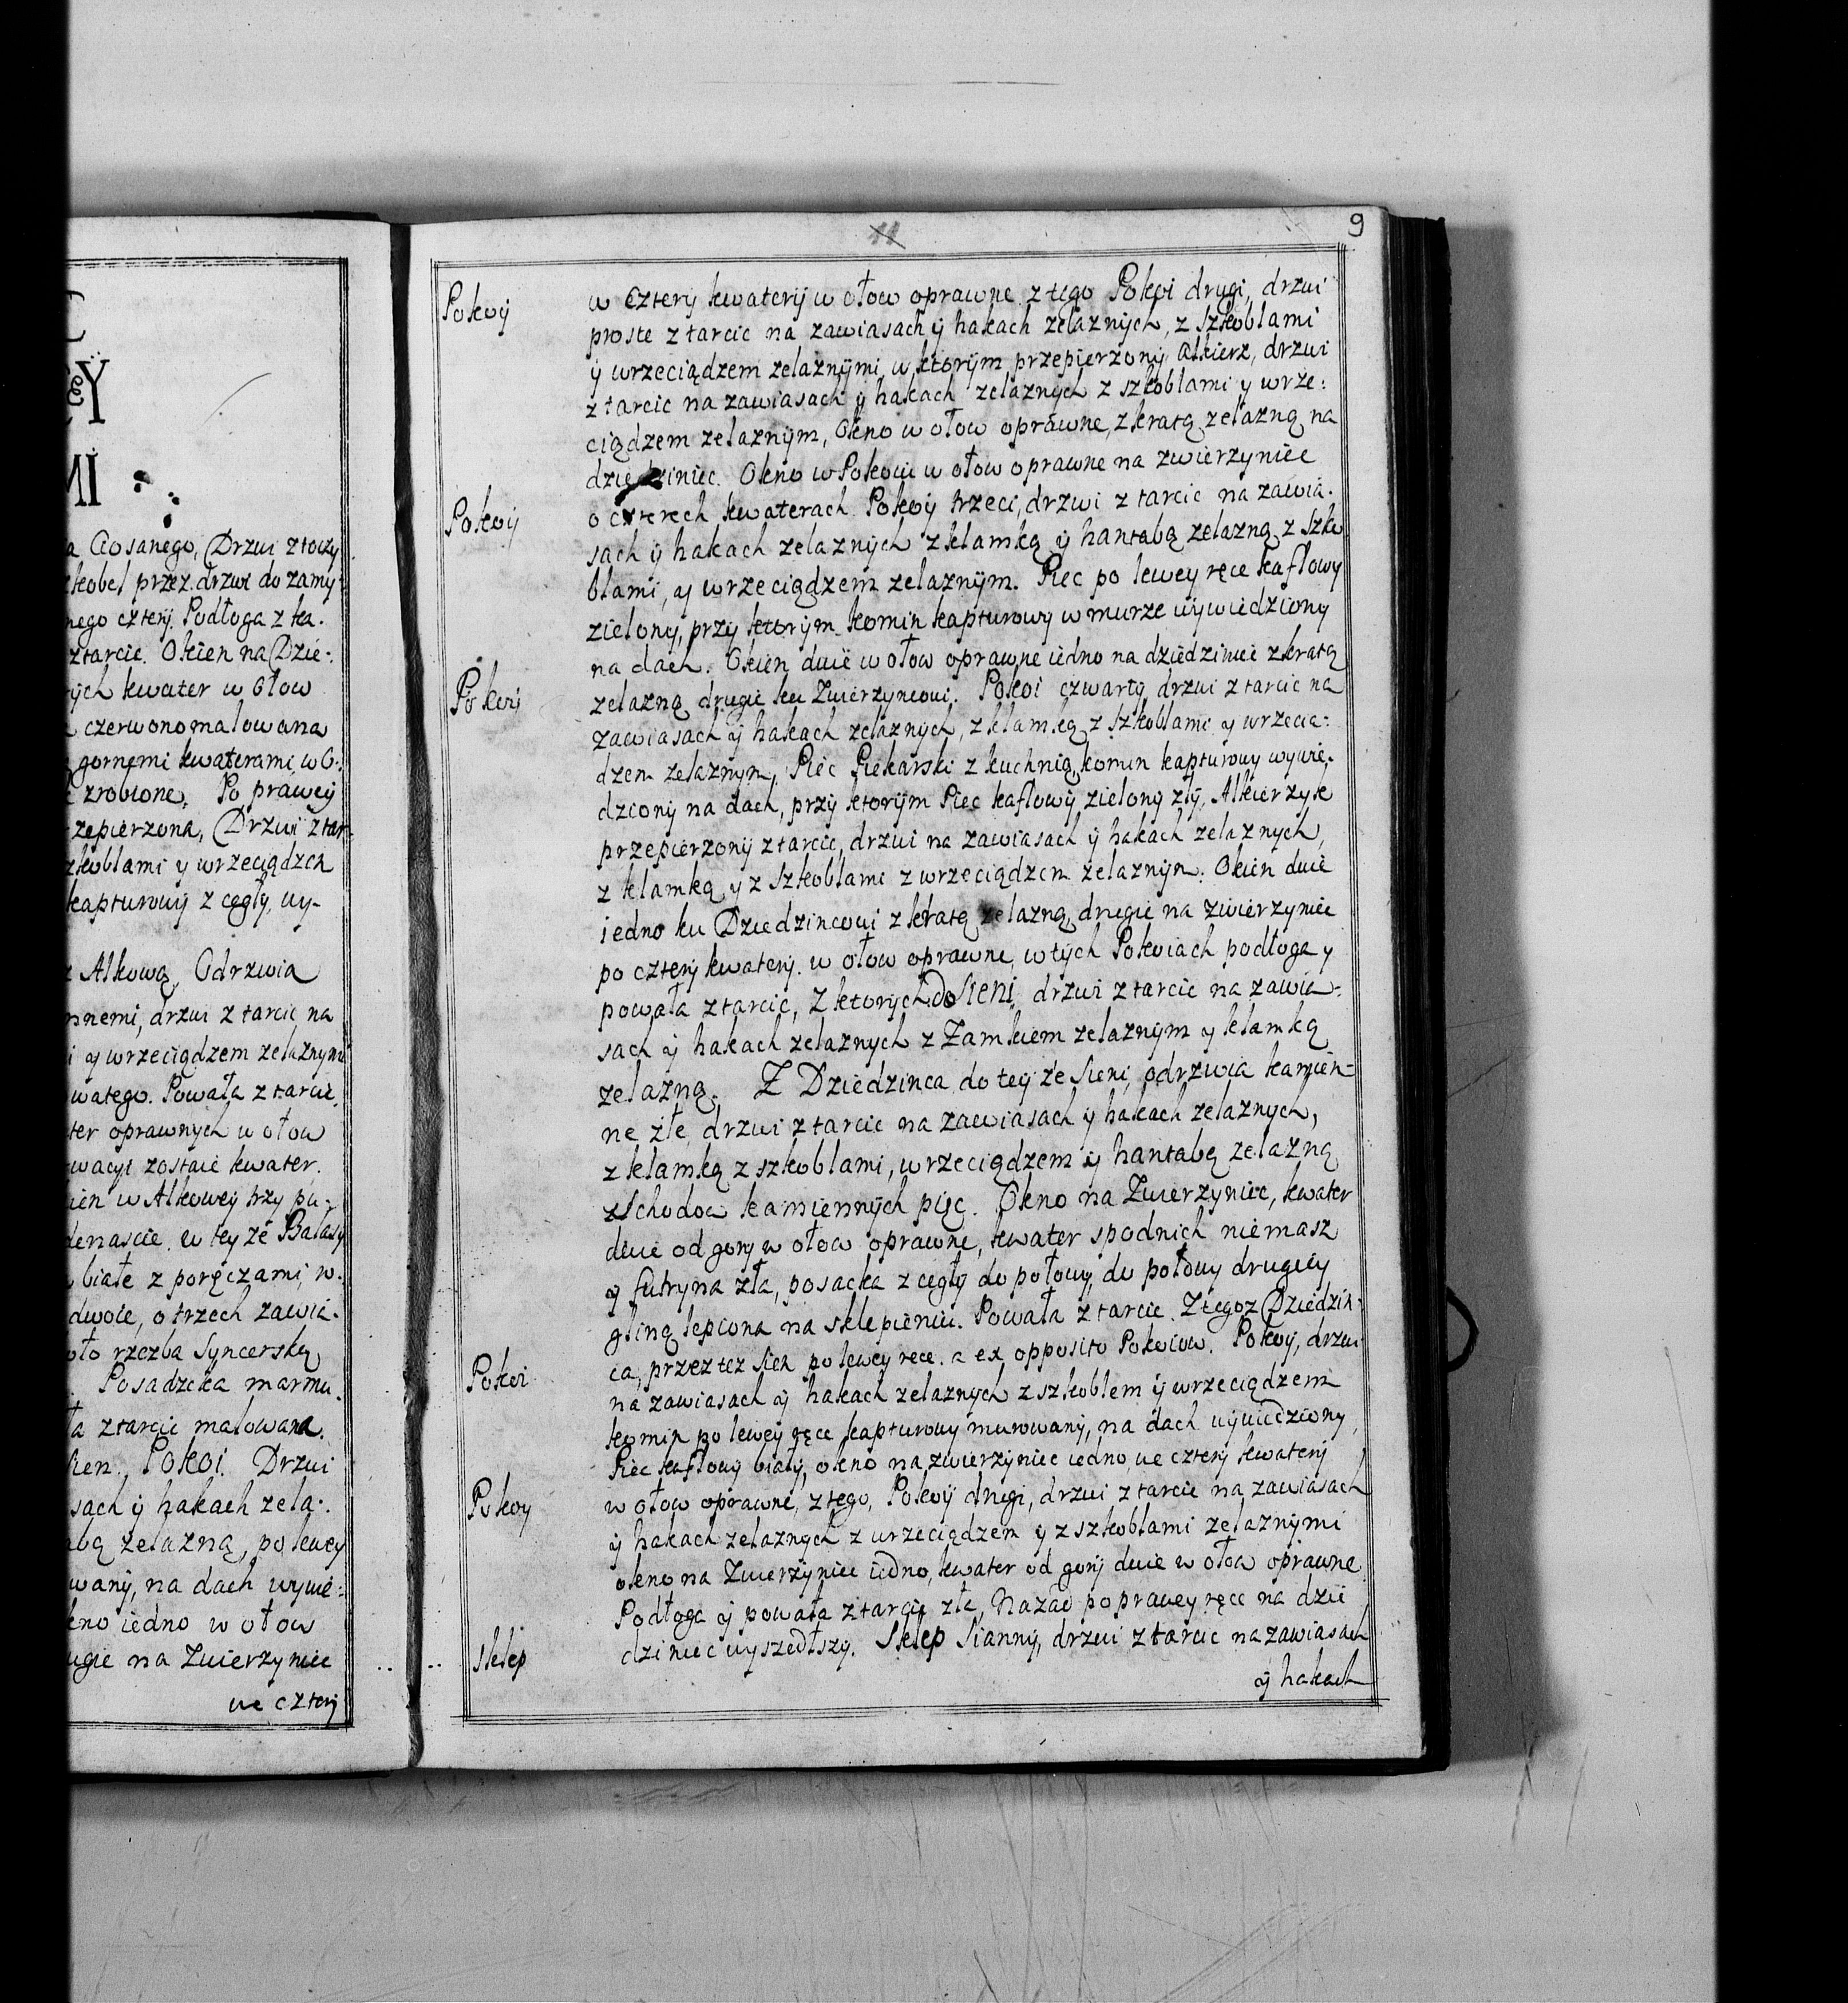 E
ĘY
MI
a Ciosanego, Drzwi z tocży
zkobel przez drzwi do zamy-
nego cztery. Podłoga z ta.
z tarcic. Okien na Dzie-
rych kwater w Ołow
czerwono malowana
gornemi kwaterami w O-
zrobione. Po prawey
zepierzona, Drzwi z tar-
zkoblami y wrzeciądzem
kapturowy z cegły, wy-
z Alkową, Odrzwia
nnemi, drzwi z tarcic na
i y wrzeciądzem zelaznymi
watego. Powała z tarcic,
ter oprawnych w ołow
wacyi zostaie kwater.
ien w Alkowey trzy pu-
denascie. w tey ze Balasy
białe z poręczami, w.
dwoie, o trzech zawia-
oło rzezba Syncerską
Posadzka marmu.
ła z tarcic malowana.
Pokoi. Drzwi
sach y hakach zela-
abą zelazną, po lewey
wany, na dach wywie-
kno iedno w ołow
ugie na Zwierzyniec
we cztery
11
9
Pokoy
w cztery kwatery w ołow oprawne. z tego Pokoi drugi, drzwi
proste z tarcic na zawiasach y hakach zelaznych, z szkoblami
y wrzeciądzem zelaznymi, w ktorym przepierzony Alkierz, drzwi
z tarcic na zawiasach y hakach zelaznych z szkoblami y wrze-
ciądzem zelaznym, Okno w ołow oprawne, z kratą zelazną na
dziedziniec. Okno w Pokoiu w ołow oprawne na zwierzyniec
Pokoy
o czterech kwaterach. Pokoy trzeci, drzwi z tarcic na zawia-
sach y hakach zelaznych z klamką y hantabą zelazną z szko
blami, y wrzeciądzem zelaznym. Piec po lewey ręce kaflowy
zielony, przy ktorym komin kapturowy w murze wywiedziony
na dach. Okien dwie w ołow oprawne iedno na dziedziniec z kratą
Pokoy
zelazną drugie ku Zwierzyncowi. Pokoi czwarty drzwi z tarcic na
zawiasach y hakach zelaznych, z klamką z szkoblami y wrzecia-
dzem zelaznym, Piec Piekarski z kuchnią, komin kapturowy wywie-
dziony na dach, przy ktorym Piec kaflowy zielony zły, Alkierzyk
przepierzony z tarcic, drzwi na zawiasach y hakach zelaznych,
z klamką y z szkoblami z wrzeciądzem zelaznym. Okien dwie
iedno ku Dziedzincowi z kratą zelazną, drugie na zwierzyniec
po cztery kwatery. w ołow oprawne, w tych Pokoiach podłoga y
powała z tarcic, z ktorych do Sieni drzwi z tarcic na zawia-
sach y hakach zelaznych z Zamkiem zelaznym y klamką
zelazną. Z Dziedzinca do tey ze Sieni, odrzwia kamien-
ne złe, drzwi z tarcic na zawiasach y hakach zelaznych,
z klamką z szkoblami, wrzeciądzem y hantabą zelazną
z Schodow kamiennych pięc. Okno na Zwierzyniec, kwater
dwie od gory w ołow oprawne, kwater spodnich niemasz
y futryna zła, posacka z cegły do połowy, do połowy drugiey
gliną lepiona na sklepieniu. Powała z tarcic. Z tegoz Dziedzin-
Pokoi
ca, przez tez Sien po lewey ręce. a ex opposito Pokoiow. Pokoy, drzwi
na zawiasach y hakach zelaznych z szkoblem y wrzeciądzem
komin po lewey ręce kapturowy murowany, na dach wywiedziony,
Piec kaflowy biały, okno na zwierzyniec iedno, we cztery kwatery
Pokoy
w ołow oprawne, z tego, Pokoy drugi, drzwi z tarcic na zawiasach
y hakach zelaznych z wrzeciądzem y z szkoblami zelaznymi
okno na Zwierzyniec iedno, kwater od gory dwie w ołow oprawne.
Podłoga y powała z tarcic złe, Nazad po prawey ręce na dzie
Sklep
dziniec wyszedłszy. Sklep Sianny, drzwi z tarcic na zawiasach
y hakach